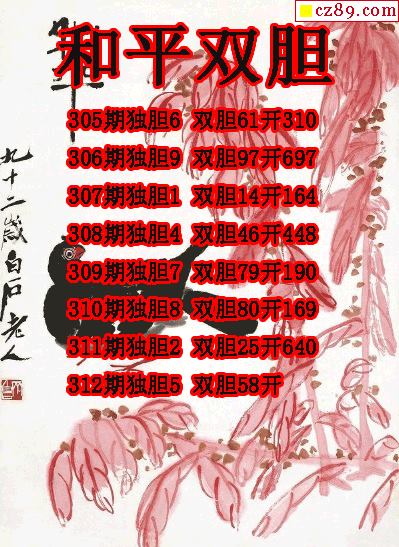 cz89.com
和平双胆
305期独胆6 双胆61开310
306期独胆9 双胆97开697
307期独胆1 双胆14开164
308期独胆4 双胆46开448
309期独胆7 双胆79开190
310期独胆8 双胆80开169
311期独胆2 双胆25开640
312期独胆5 双胆58开
九十二歲白石老人